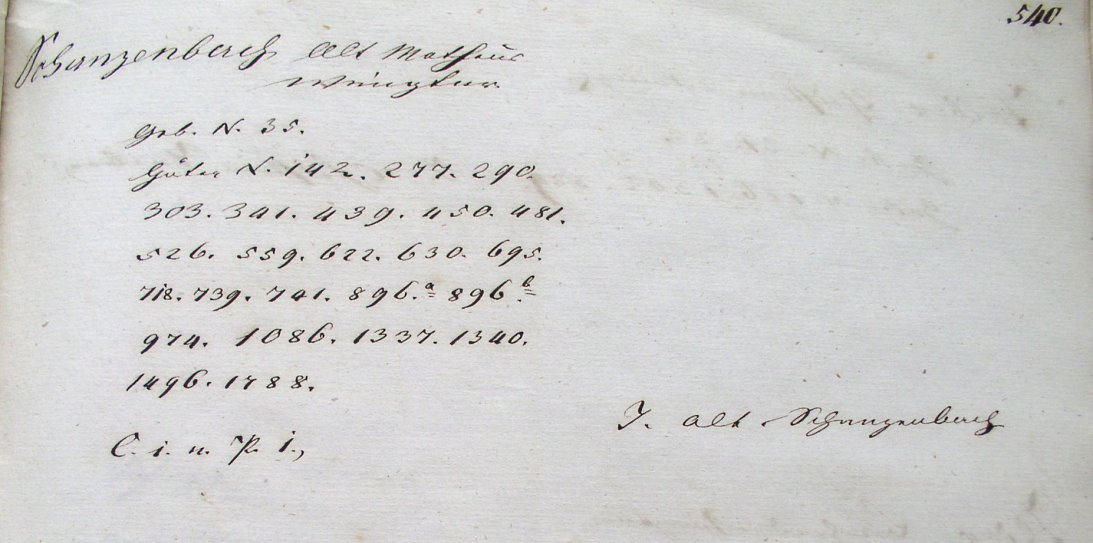 540.
Schanzenbach Alt Matheus
Weingtnr.
Geb. N. 35.
Güter N. 142. 277. 290.
303. 341. 439. 450. 481.
526. 559. 622. 630. 695.
718. 739. 741. 896.a 896.b
974. 1086. 1337. 1340.
1496. 1788.
T. alt Schanzenbach
C. i. u. P. i.,